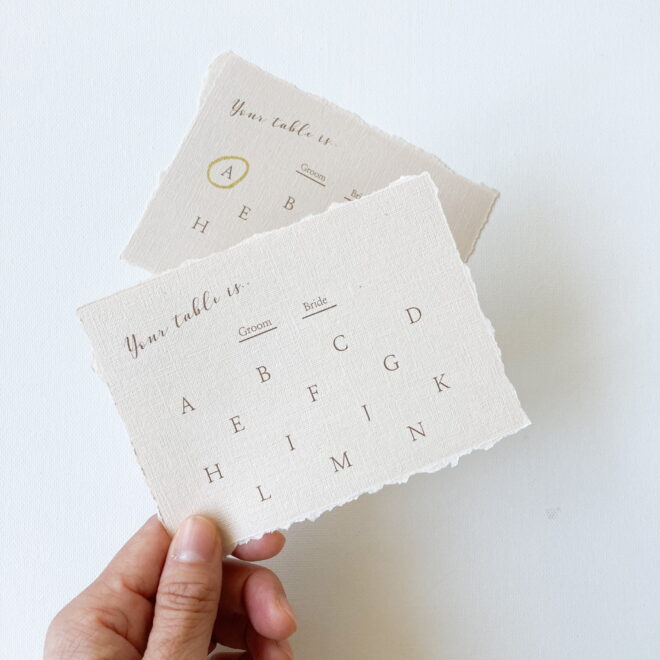 Your table is..
A
Groom
H E B
Your table is..
Groom Bride
A B C D
E F G
H I J K
L M N